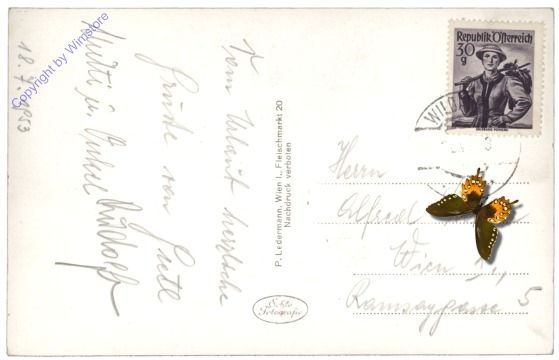 18. 7. 1953
Vom Urlaub herzliche
Grüße von Gretl
Mutti u. Onkel Rudolf
Copyright by Winstore
P. Ledermann, Wien I., Fleischmarkt 20
Nachdruck verboten
Echte
Fotografie
Republik Österreich
30
g
WILD
Herrn
Alfred
Wien
Ramsaygasse 5